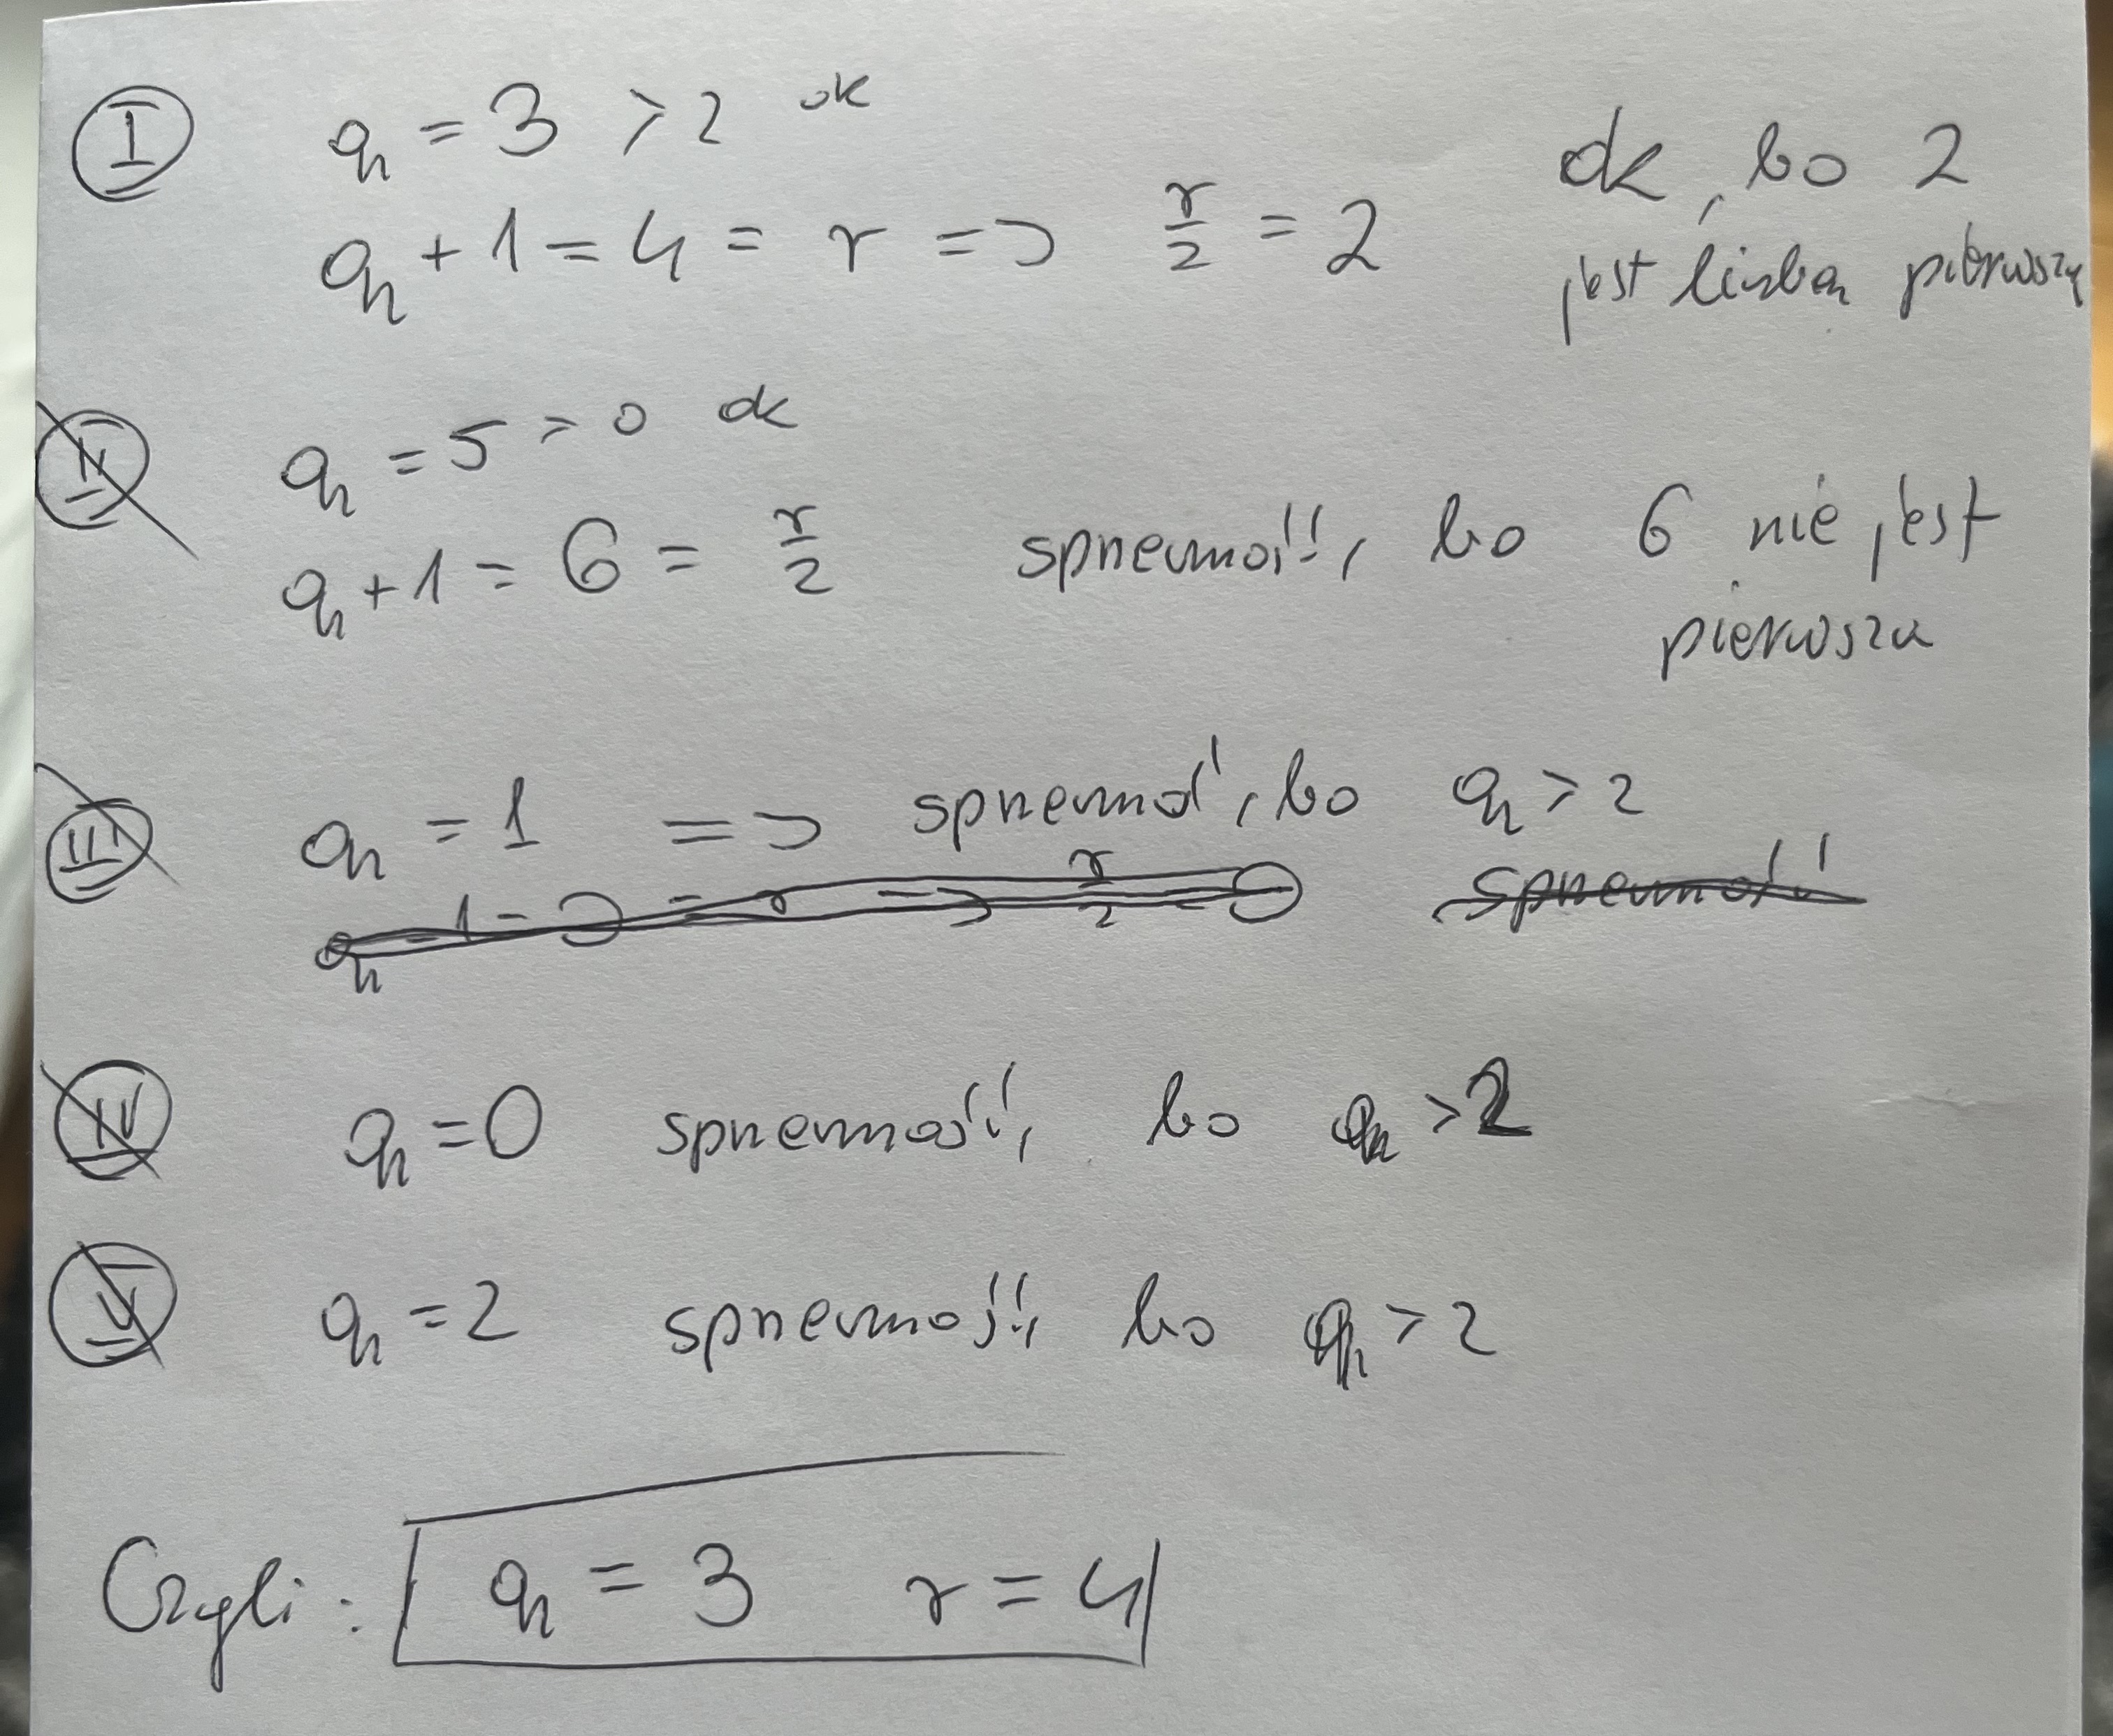 I q = 3 > 2 ok
q + 1 = 4 = r => r/2 = 2 ok, bo 2
jest liczbą pierwszą
II q = 5 > 0 ok
q + 1 = 6 = r/2 sprzeczność, bo 6 nie jest
pierwsza
III q = 1 => sprzeczność, bo q > 2
q - 1 = 0 = r => r/2 = 0 sprzeczność
IV q = 0 sprzeczność, bo q > 2
V q = 2 sprzeczność, bo q > 2
Czyli: q = 3 r = 4